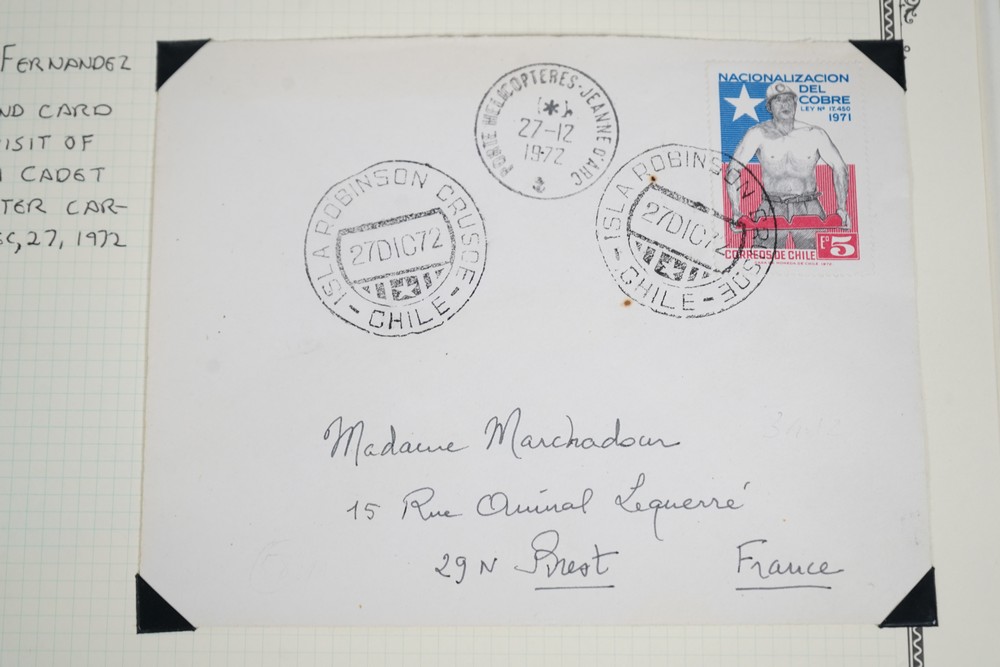 FERNANDEZ
ND CARD
ISIT OF
CADET
TER CAR-
27, 1972
PORTE HELICOPTERES-JEANNE D'ARC
(*)
27-12
1972
ISLA ROBINSON CRUSOE
27DIC72
- CHILE -
ISLA ROBINSON CRUSOE
27DIC72
- CHILE -
NACIONALIZACION
DEL
COBRE
LEY Nº 17.450
1971
Eº 5
CORREOS DE CHILE
Madame Marchadour
15 Rue Amiral Lequerré
29 N Brest France